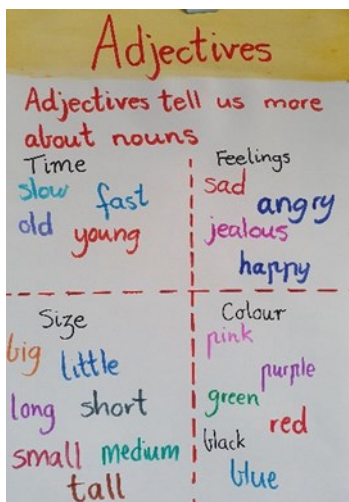 Adjectives
Adjectives tell us more
about nouns
Time
slow fast
old young
Feelings
sad
angry
jealous
happy
Size
big little
long short
small medium
tall
Colour
pink
purple
green
red
black
blue